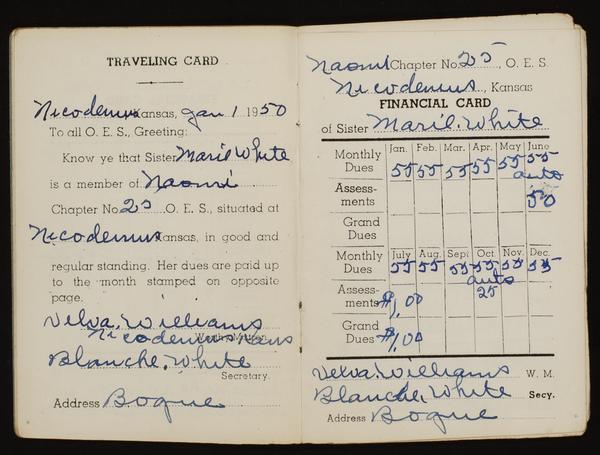 TRAVELING CARD
Nicodemus Kansas, Jan 1 1950
To all O. E. S., Greeting:
Know ye that Sister Marie White
is a member of Naomi
Chapter No. 25 O. E. S., situated at
Nicodemus Kansas, in good and
regular standing. Her dues are paid up
to the month stamped on opposite
page.
Velva. Williams
Nicodemus Kans
Worthy Matron.
Blanche. White
Secretary.
Address Bogue
Naomi Chapter No. 25, O. E. S.
Nicodemus, Kansas
FINANCIAL CARD
of Sister Marie. White
Jan. Feb. Mar. Apr. May June
Monthly Dues 55 55 55 55 55 55
auto
Assessments 50
Grand Dues
July Aug. Sept Oct. Nov. Dec.
Monthly Dues 55 55 55 55 55 55
auto
Assessments $1,00 25
Grand Dues $1,00
Velva. Williams W. M.
Blanche, White Secy.
Address Bogue